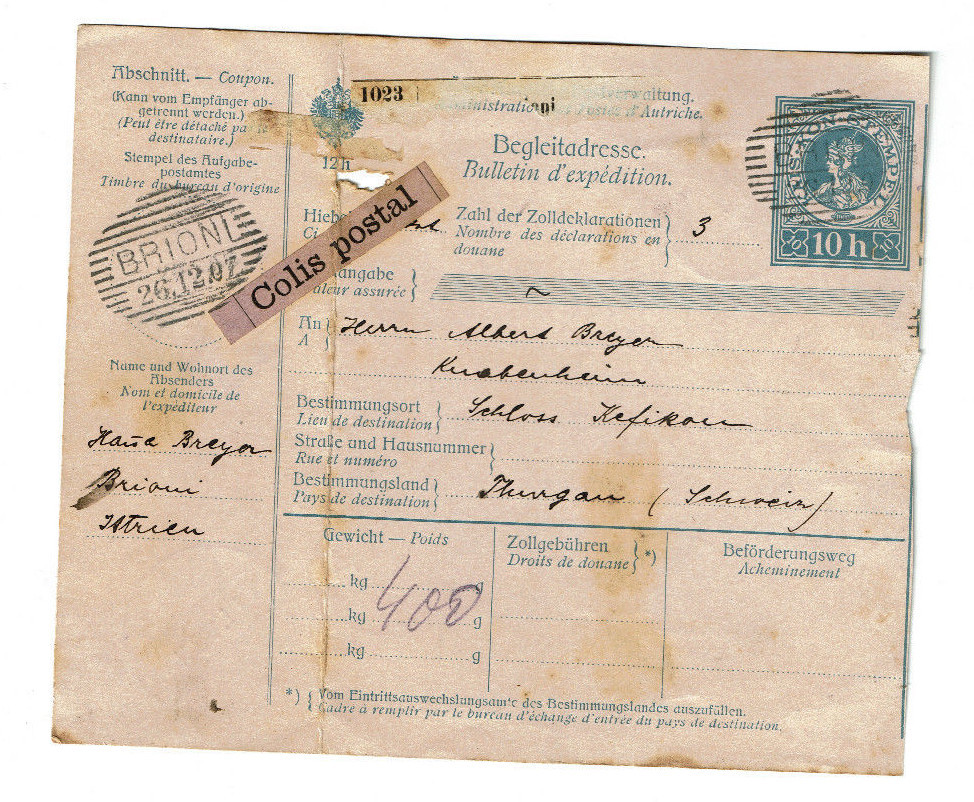 Abschnitt. — Coupon.
(Kann vom Empfänger ab-
getrennt werden.)
(Peut être détaché par le
destinataire.)
Stempel des Aufgabe-
postamtes
Timbre du bureau d'origine
BRIONI
26.12.07
Name und Wohnort des
Absenders
Nom et domicile de
l'expéditeur
Breyer
Brioni
Istrien
1023
d'Autriche.
12 h
Begleitadresse.
Bulletin d'expédition.
KAIS·KÖN·STEMPEL
10 h
Colis postal
Zahl der Zolldeklarationen
Nombre des déclarations en
douane
3
valeur assurée
An Herrn Albert Breyer
A
Knabenheim
Bestimmungsort Schloss Kefikon
Lieu de destination
Straße und Hausnummer
Rue et numéro
Bestimmungsland Thurgau (Schweiz)
Pays de destination
Gewicht — Poids
kg g
kg 400 g
kg g
Zollgebühren *)
Droits de douane
Beförderungsweg
Acheminement
*) Vom Eintrittsauswechslungsamte des Bestimmungslandes auszufüllen.
Cadre à remplir par le bureau d'échange d'entrée du pays de destination.